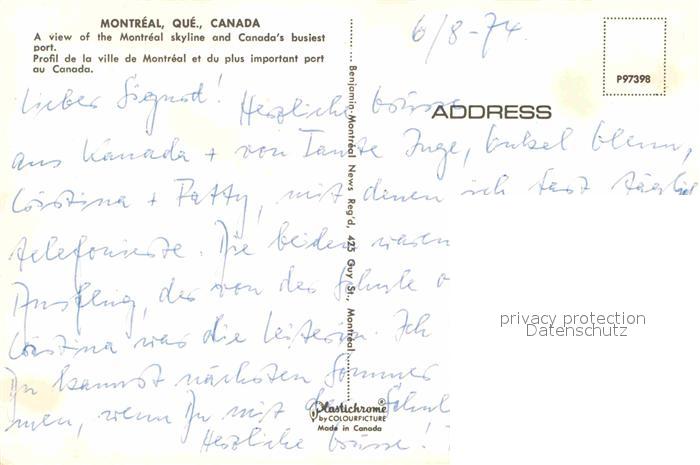 MONTRÉAL, QUÉ., CANADA
A view of the Montréal skyline and Canada's busiest
port.
Profil de la ville de Montréal et du plus important port
au Canada.
6/8-74.
P97398
ADDRESS
Benjamin Montréal News Reg'd, 425 Guy St., Montréal
Lieber Sigurd! Herzliche Grüsse
aus Kanada + von Tante Inge, Onkel Glenn,
Christina + Patty, mit denen ich fast täglich
telefonierte. Die beiden waren
Ausflug, der von der Schule
Christina war die Leiterin. Ich
Du kannst nächsten Sommer
men, wenn Du mit der Schul
Herzliche Grüsse!
privacy protection
Datenschutz
Plastichrome®
by COLOURPICTURE
Made in Canada